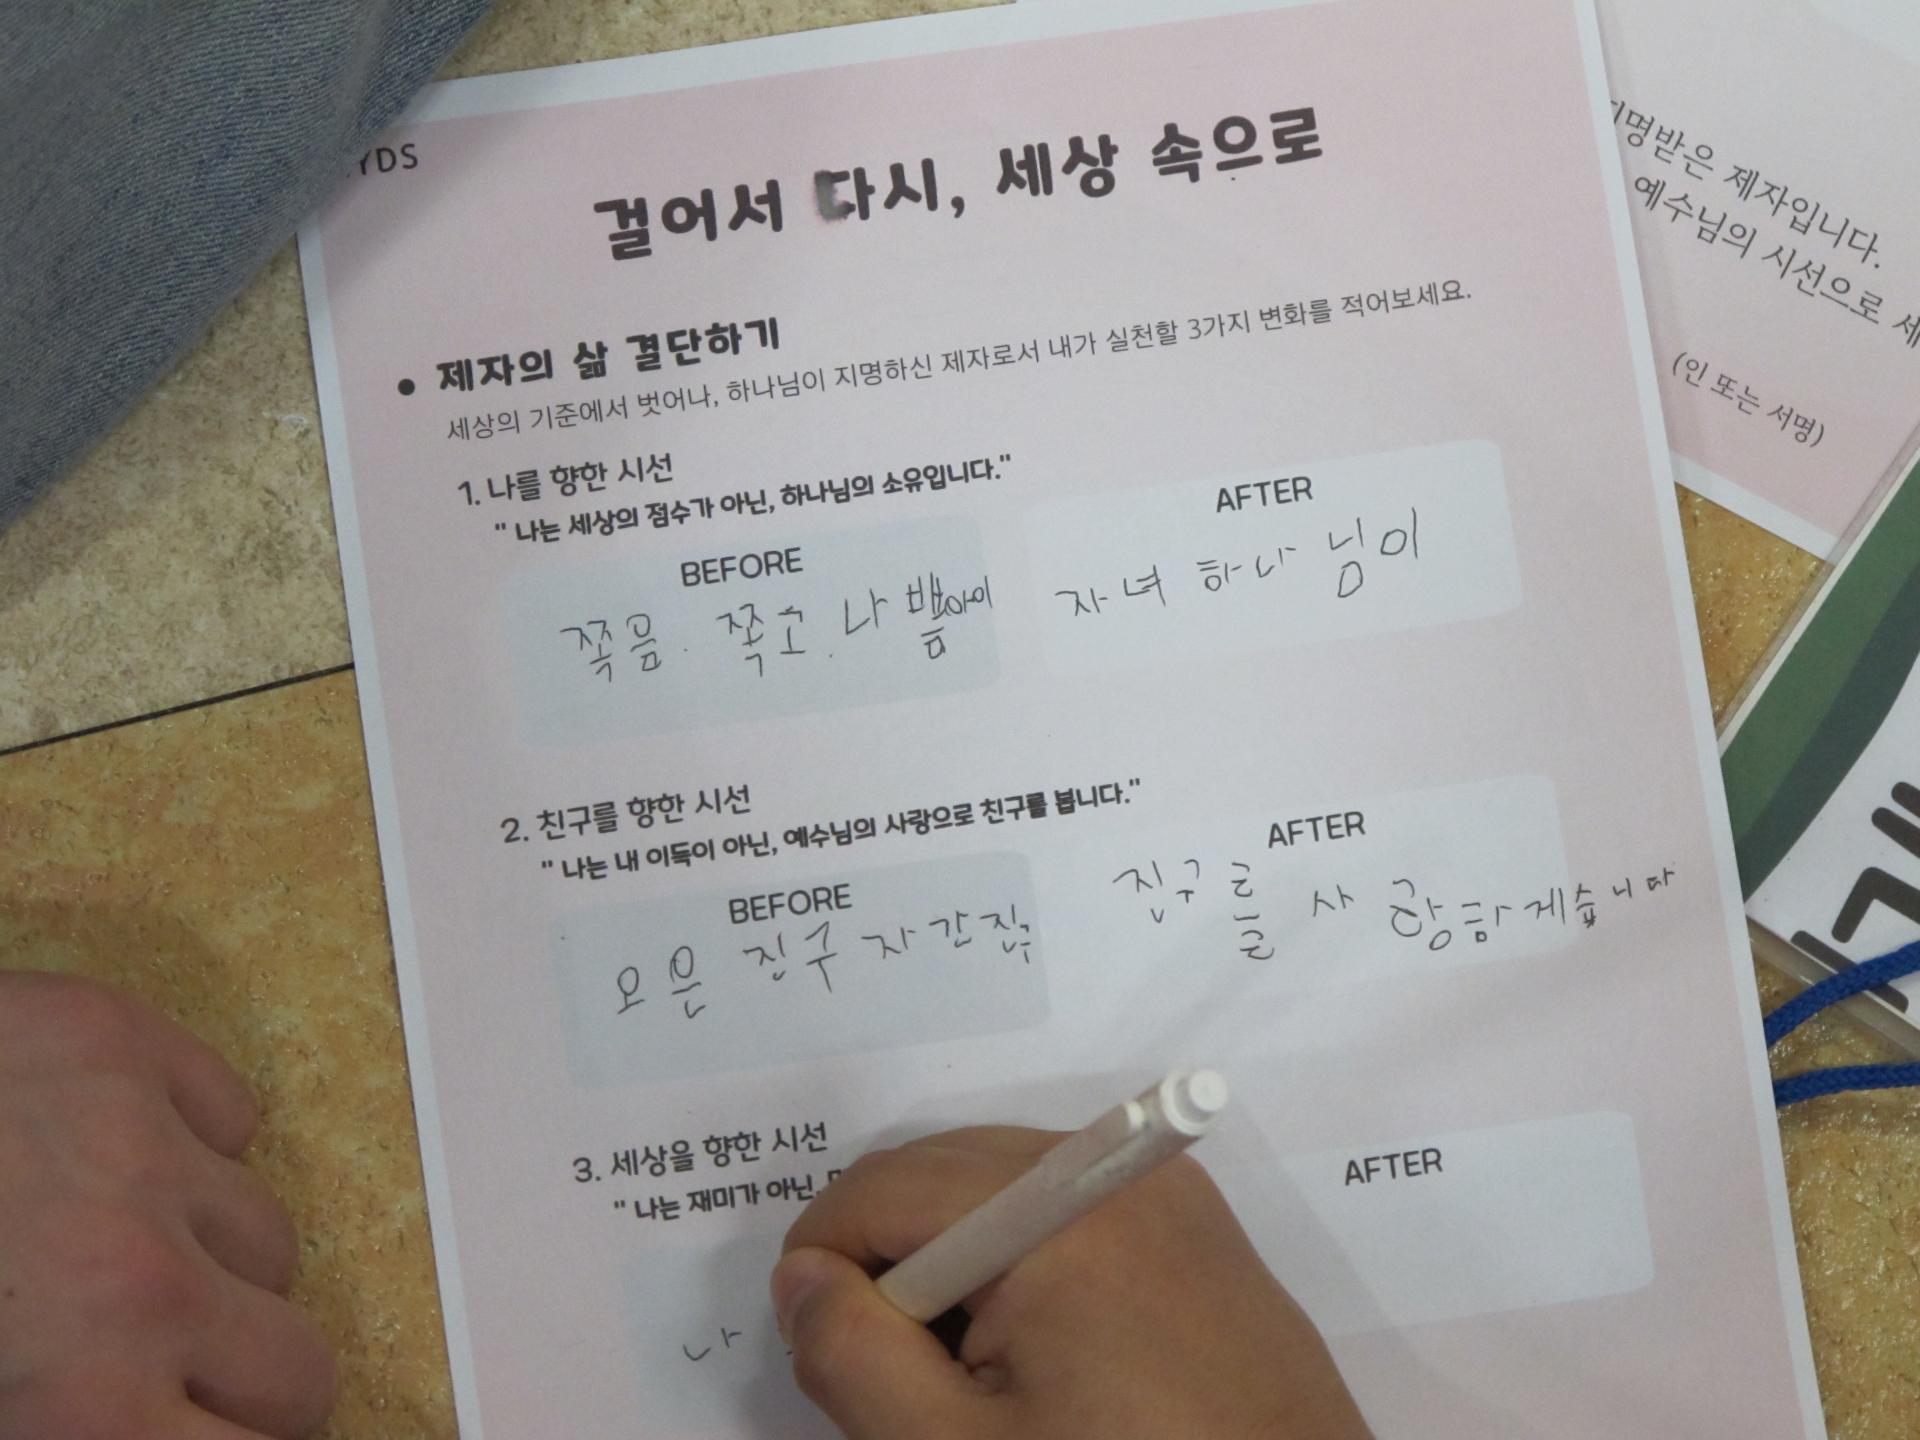 YDS
걸어서 다시, 세상 속으로
● 제자의 삶 결단하기
세상의 기준에서 벗어나, 하나님이 지명하신 제자로서 내가 실천할 3가지 변화를 적어보세요.
1. 나를 향한 시선
" 나는 세상의 점수가 아닌, 하나님의 소유입니다."
BEFORE
쪽음. 쪽고. 나
AFTER
자녀 하나님이
2. 친구를 향한 시선
" 나는 내 이득이 아닌, 예수님의 사랑으로 친구를 봅니다."
BEFORE
진구 자간
AFTER
진구를 사랑하게습니다
3. 세상을 향한 시선
" 나는 재미가 아닌,
나
AFTER
지명받은 제자입니다.
예수님의 시선으로 세
(인 또는 서명)